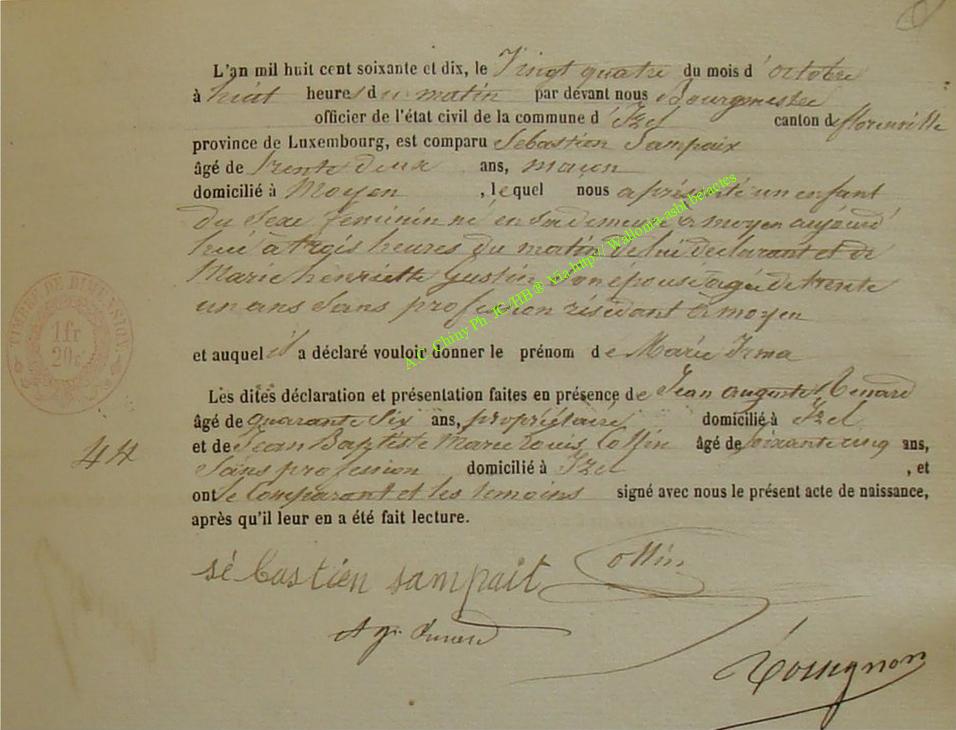 L'an mil huit cent soixante et dix, le Vingt quatre du mois d'octobre
à huit heures du matin par dévant nous Bourgmestre
officier de l'état civil de la commune d'Izel canton de florenville
province de Luxembourg, est comparu Sébastien Sampaix
âgé de trente deux ans, maçon
domicilié à Moyen, lequel nous a présenté un enfant
du sexe féminin né en sa demeure à moyen aujourd
hui à trois heures du matin de lui déclarant et de
Marie henriette Gustin son épouse agée de trente
un ans sans profession résidant à moyen
et auquel il a déclaré vouloir donner le prénom de Marie Irma
Les dites déclaration et présentation faites en présence de Jean Renard
âgé de quarante six ans, propriétaire domicilié à Izel
44
et de Jean Baptiste Marie Louis Collin âgé de soixante cinq ans,
sans profession domicilié à Izel, et
ont le Comparant et les témoins signé avec nous le présent acte de naissance,
après qu'il leur en a été fait lecture.
sébastien sampait Collin
Rossignon
TIMBRE DE DIMENSION
1fr
20c
A.C. Chiny Ph. JC-HB® Via http// Wallonia-asbl.be/actes